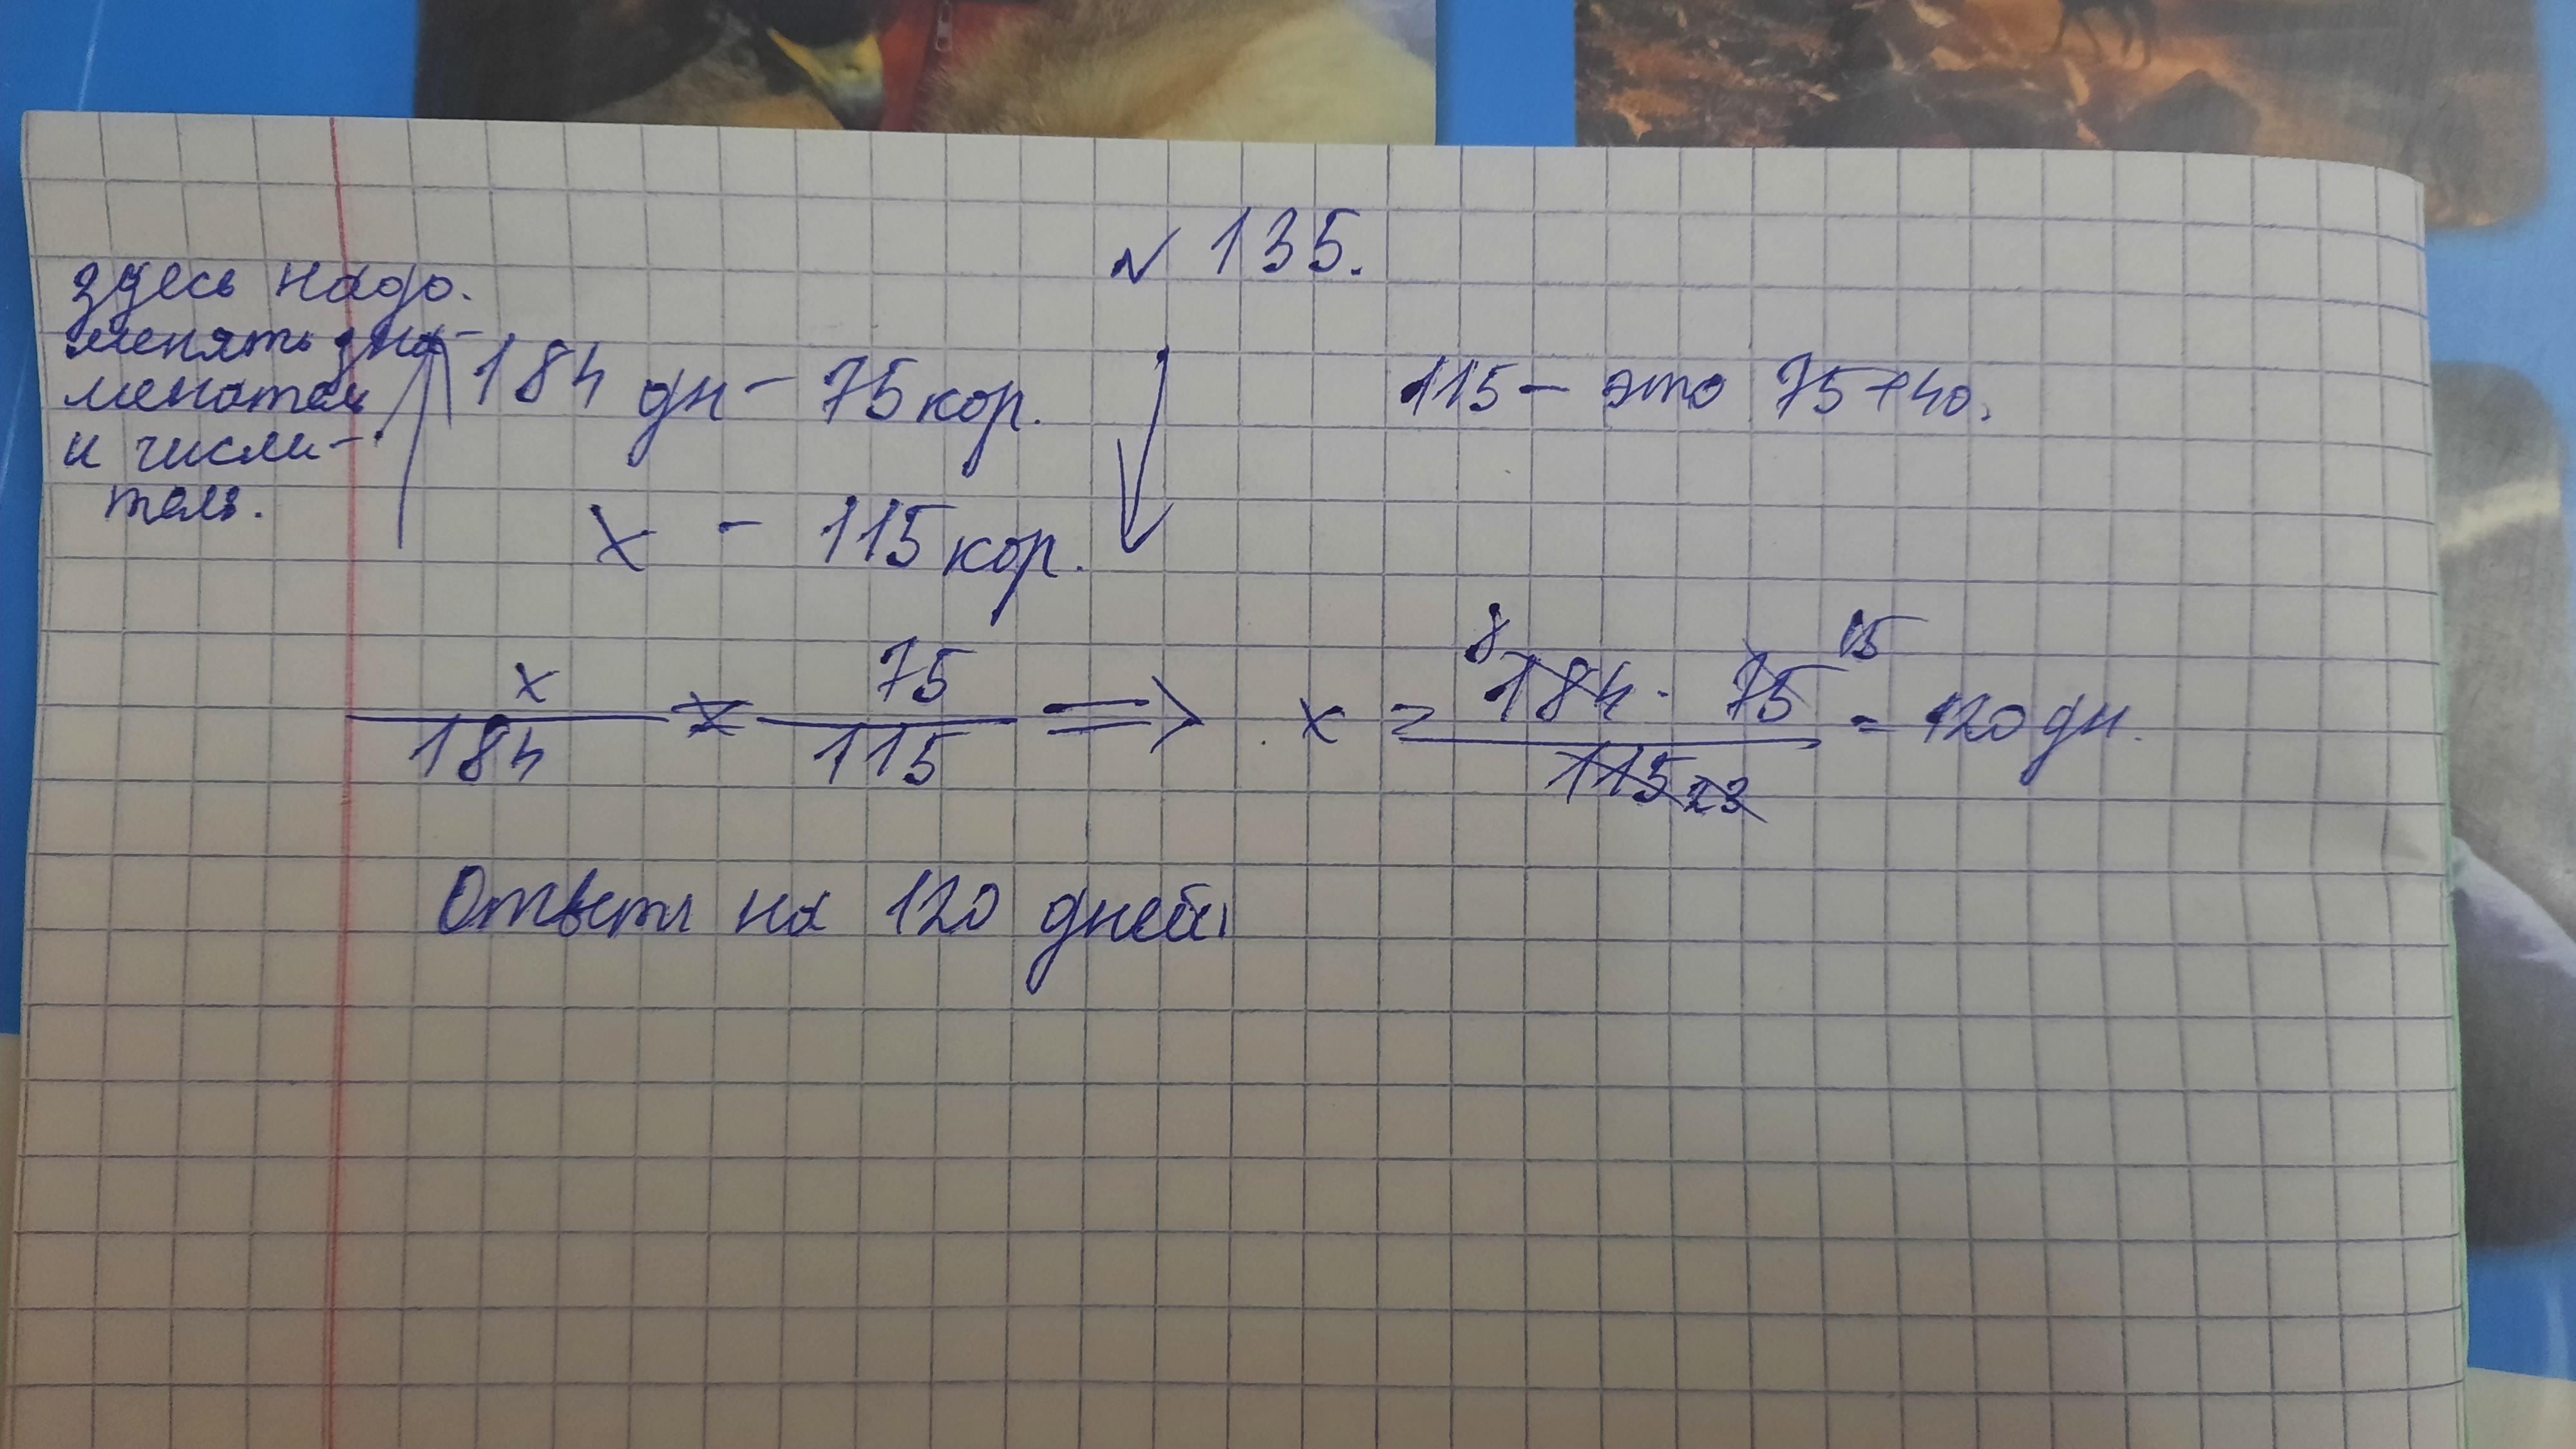 № 135.
здесь надо.
менять зна-
менатель
и числи-
тель.
184 дн - 75 кор.
115 - это 75+40.
x - 115 кор.
x/184 = 75/115 => x = 184 · 75/115 = 120 дн.
8 15
23
Ответ на 120 дней